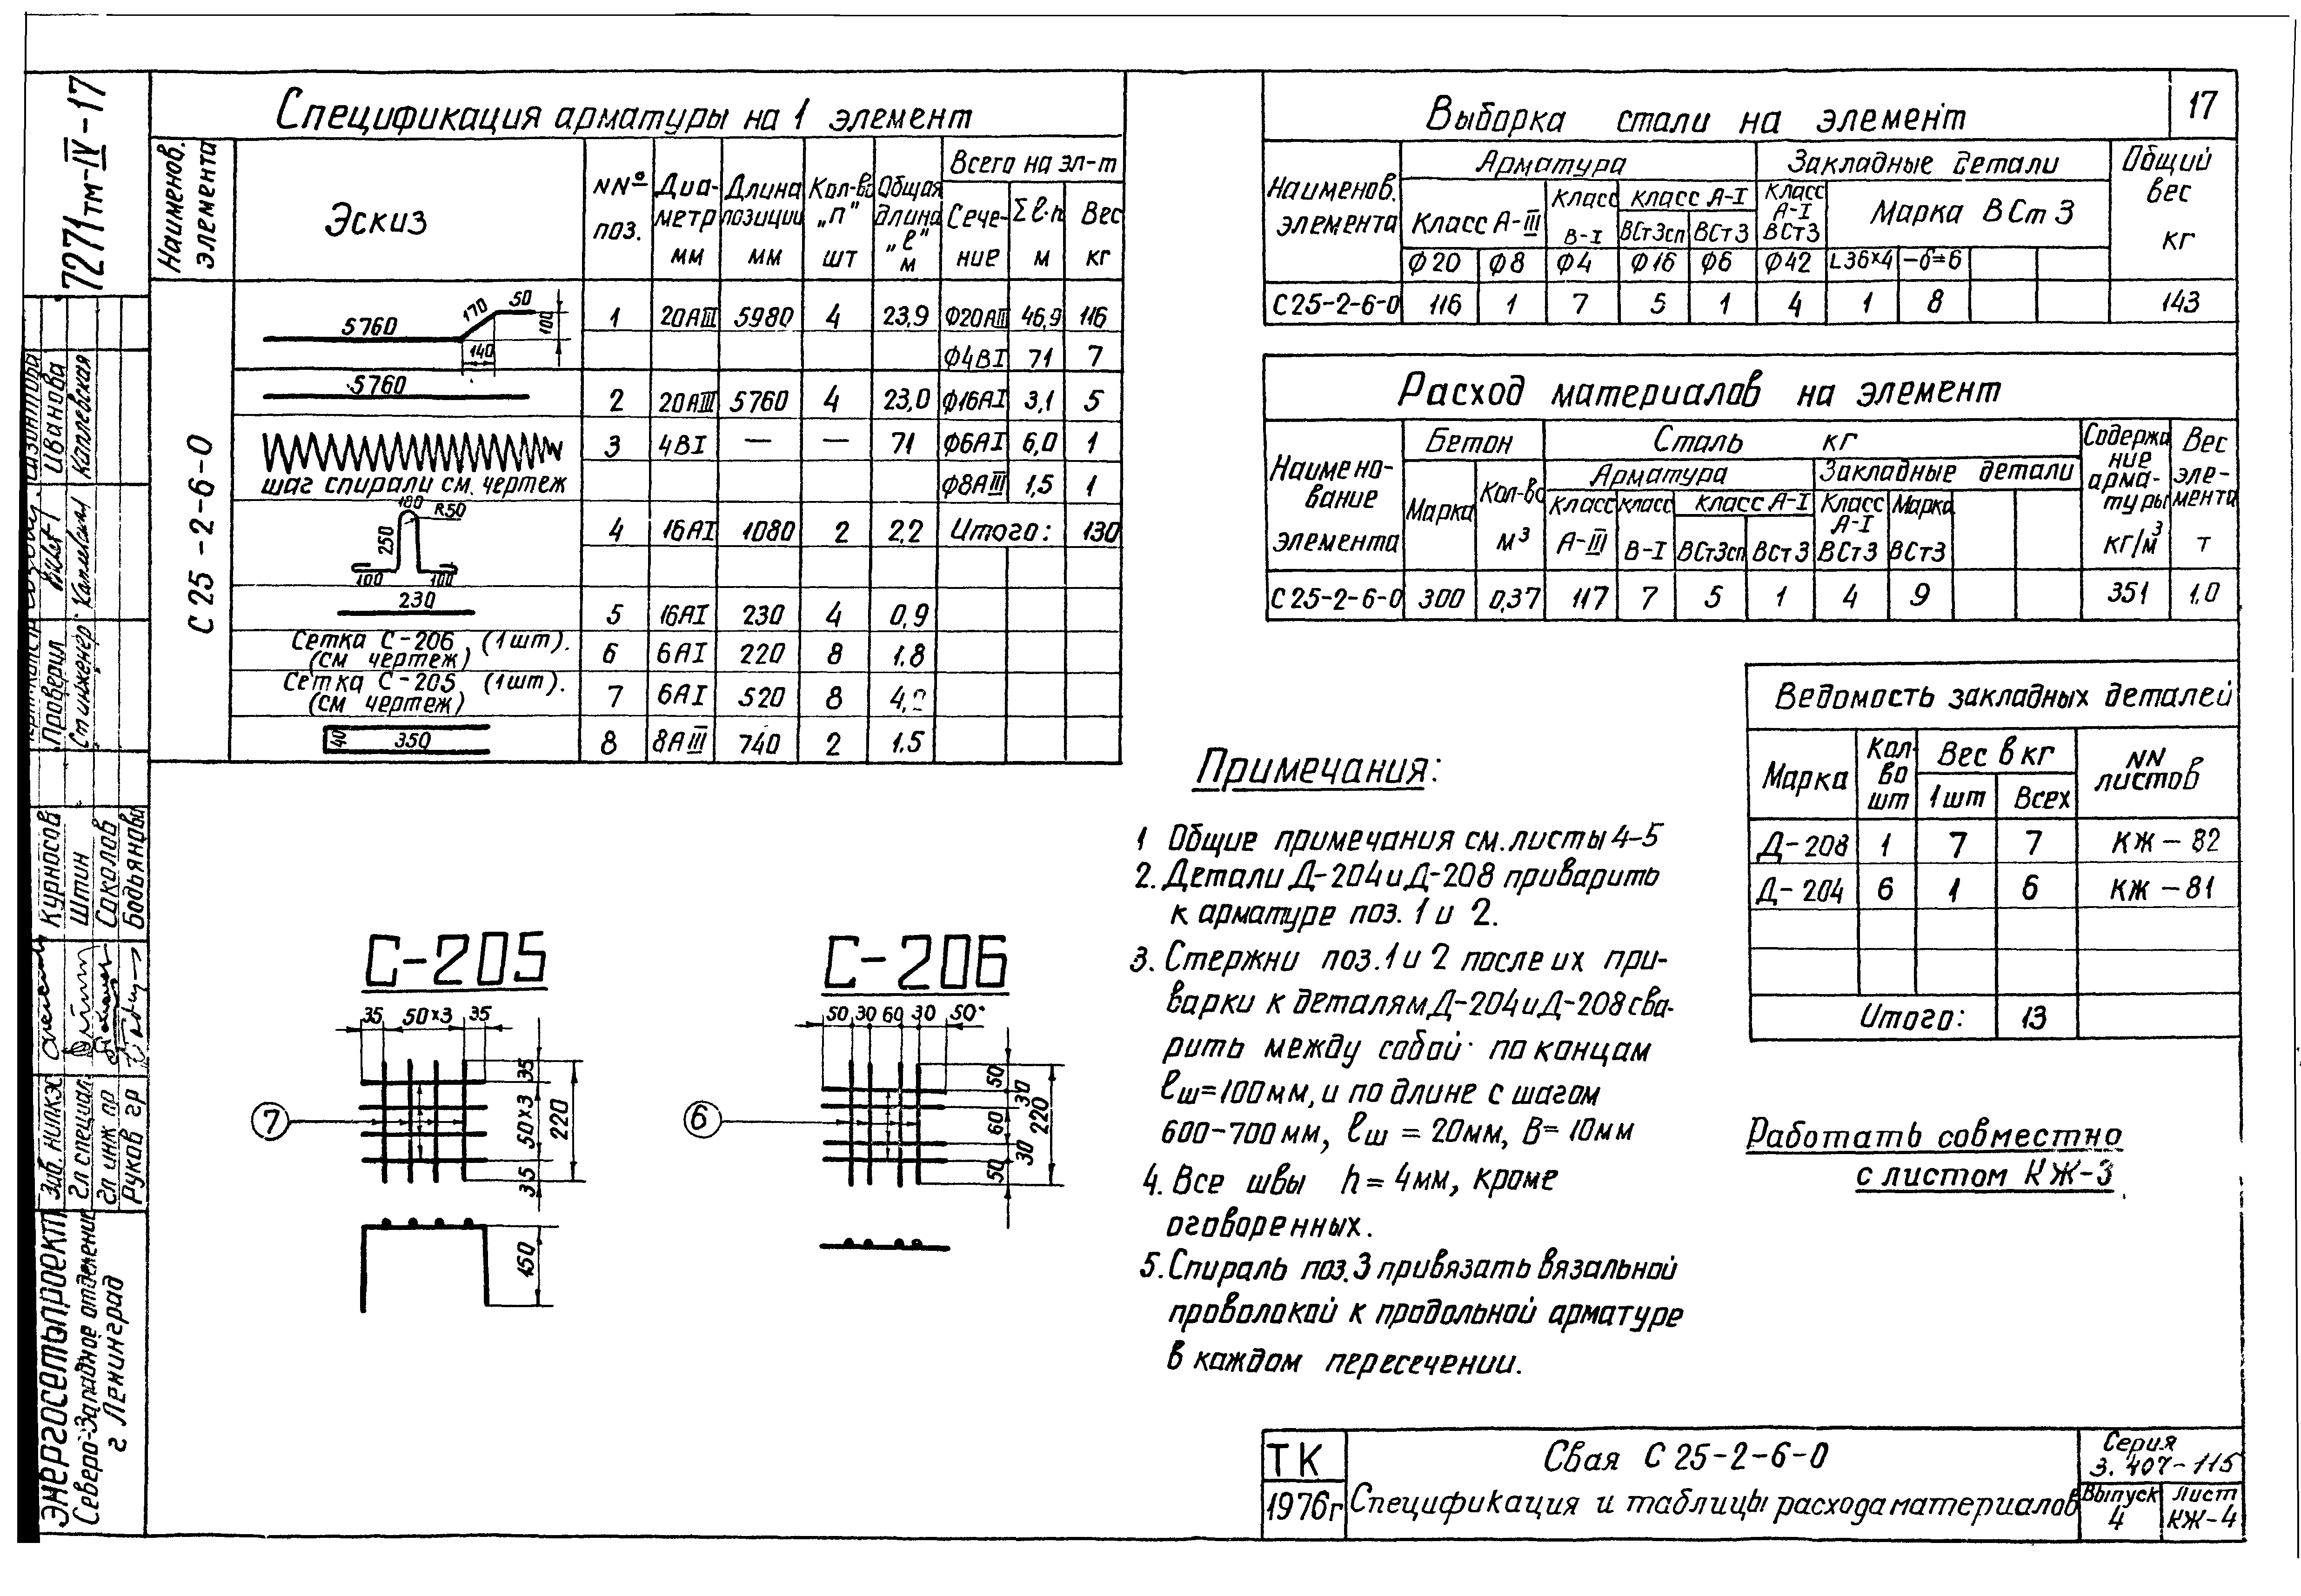 7271тм-IV-17
17
Спецификация арматуры на 1 элемент
Наименов. элемента
Эскиз
NNº поз.
Диаметр мм
Длина позиции мм
Кол-во „п" шт
Общая длина „ℓ" м
Всего на эл-т
Сечение
Σℓ·п м
Вес кг
С 25-2-6-0
5760 170 50 100 140
1 20АIII 5980 4 23,9 Ф20АIII 46,9 116
Ф4ВI 71 7
5760
2 20АIII 5760 4 23,0 Ф16АI 3,1 5
3 4ВI — — 71 Ф6АI 6,0 1
шаг спирали см. чертеж
Ф8АIII 1,5 1
180 R50 250 100 100
4 16АI 1080 2 2,2 Итого: 130
230
5 16АI 230 4 0,9
Сетка С-206 (1шт).
(см чертеж)
6 6АI 220 8 1.8
Сетка С-205 (1шт).
(см чертеж)
7 6АI 520 8
40 350
8 8АIII 740 2 1.5
Выборка стали на элемент
Наименов. элемента
Арматура
Закладные детали
Общий вес кг
Класс А-III
Класс В-I
класс А-I
ВСт3сп ВСт3
Класс А-I ВСт3
Марка ВСт3
Ф20 Ф8 Ф4 Ф16 Ф6 Ф42 L36×4 -δ=6
С25-2-6-0 116 1 7 5 1 4 1 8 143
Расход материалов на элемент
Наименование элемента
Бетон
Сталь кг
Содержание арматуры кг/м³
Вес элемента т
Марка
Кол-во м³
Арматура
Закладные детали
Класс А-III
класс В-I
класс А-I
ВСт3сп ВСт3
Класс А-I ВСт3
Марка ВСт3
С25-2-6-0 300 0,37 117 7 5 1 4 9 351 1.0
Ведомость закладных деталей
Марка
Кол-во шт
Вес в кг
1 шт Всех
NN листов
Д-208 1 7 7 КЖ-82
Д-204 6 1 6 КЖ-81
Итого: 13
Примечания:
1 Общие примечания см. листы 4-5
2. Детали Д-204 и Д-208 приварить
к арматуре поз. 1 и 2.
3. Стержни поз. 1 и 2 после их при-
варки к деталям Д-204 и Д-208 сва-
рить между собой по концам
ℓш=100мм, и по длине с шагом
600-700мм, ℓш = 20мм, В=10мм
4. Все швы h=4мм, кроме
оговоренных.
5. Спираль поз. 3 привязать вязальной
проволокой к продольной арматуре
в каждом пересечении.
Работать совместно
с листом КЖ-3
С-205
35 50×3 35
35
50×3
35
220
7
150
С-206
50 30 60 30 50
50
30
60
30
50
220
6
Иванова
Каплевская
Проверил
Ст инженер
Курносов
Штин
Соколов
Зав. НИПКЭ
Гл специал
Гл инж пр
Руков гр
Энергосетьпроект
Северо-Западное отделение
г Ленинград
ТК
1976г
Свая С 25-2-6-0
Спецификация и таблицы расхода материалов
Серия
3.407-115
Выпуск
4
Лист
КЖ-4